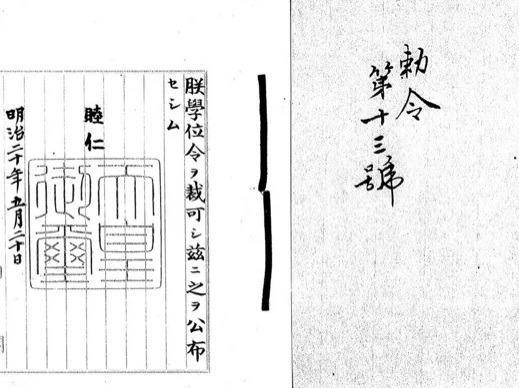 勅令
第十三號
朕學位令ヲ裁可シ茲ニ之ヲ公布
セシム
睦仁
天皇
御璽
明治二十年五月二十日